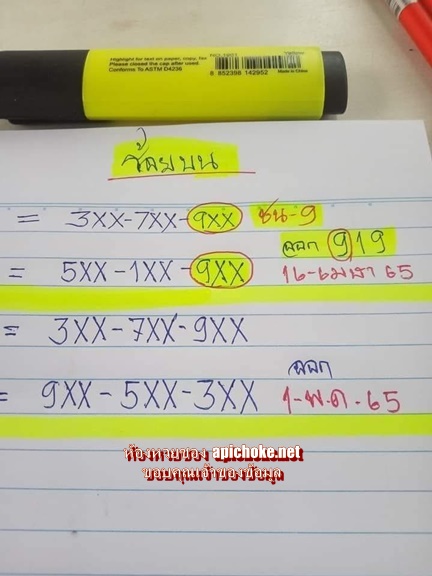 Highlight for text on paper, copy, fax
Please closed the cap after used.
Conforms To ASTM D4236
Yellow
8 852398 142952
Made in China
ร้อยบน
= 3XX-7XX-9XX ชน-9
ออก 919
= 5XX-1XX-9XX 16-เมษา 65
= 3XX-7XX-9XX
ออก
= 9XX-5XX-3XX 1-พ.ค.-65
ห้องหวยของ apichoke.net
ขอบคุณเจ้าของข้อมูล